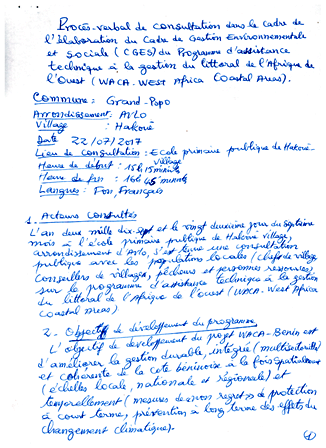 Procès-verbal de consultation dans le cadre de
l'Elaboration du Cadre de Gestion Environnementale
et Sociale (CGES) du Programme d'assistance
technique à la gestion du littoral de l'Afrique de
l'Ouest (WACA-West Africa Coastal Areas).
Commune : Grand-Popo
Arrondissement : Avlo
Village : Hakoué
Date 22/07/2017
Lieu de consultation : Ecole primaire publique de Hakoué-
village
Heure de début : 15h 15 minutes
Heure de fin : 16h 45 minutes
Langues : Fon, Français
1. Acteurs Consultés
L'an deux mille dix-sept et le vingt deuxième jour du septième
mois à l'école primaire publique de Hakoué village,
arrondissement d'Avlo, s'est tenue une consultation
publique avec les populations locales (Chefs de village
Conseillers de villages, pêcheurs et personnes ressources)
sur le programme d'assistance technique à la gestion
du littoral de l'Afrique de l'ouest (WACA-West Africa
Coastal Areas)
2- Objectif de développement du programme
L'objectif de développement du projet WACA-Benin est
d'améliorer la gestion durable, intégrée (multisectorielle)
et cohérente de la côte béninoise à la fois spatialement
(échelles locale, nationale et régionale) et
temporellement (mesures de non regrets de protection
à court terme, prévention à long terme des effets du
changement climatique).